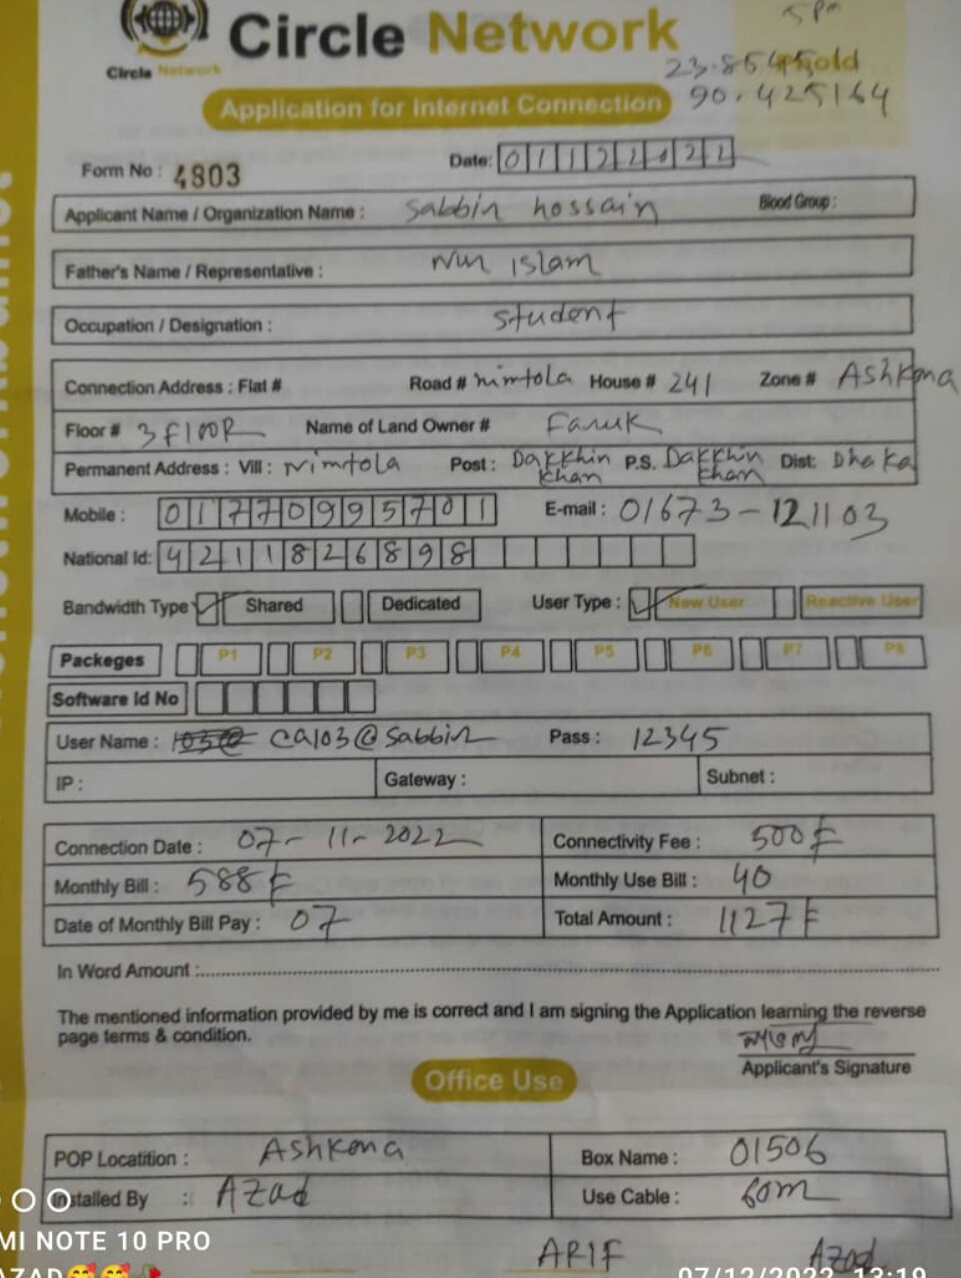 5 Pm
Circle Network
Circle Network
23.8545
90.425164
Application for Internet Connection
Form No : 4803
Date: 01122022
Applicant Name / Organization Name : Sabbir hossain Blood Group :
Father's Name / Representative : Nur islam
Occupation / Designation : student
Connection Address : Flat # Road # nimtola House # 241 Zone # Ashkona
Floor # 3 floor Name of Land Owner # Faruk
Permanent Address : Vill : Nimtola Post : Dakkhin khan P.S. Dakkhin khan Dist: Dhaka
Mobile : 01770995701 E-mail : 01673-121103
National Id: 4211826898
Bandwidth Type Shared Dedicated User Type : New User Reactive User
Packeges P1 P2 P3 P4 P5 P6 P7 P8
Software Id No
User Name : ca103@sabbir Pass : 12345
IP : Gateway : Subnet :
Connection Date : 07-11-2022 Connectivity Fee : 500
Monthly Bill : 588 Monthly Use Bill : 40
Date of Monthly Bill Pay : 07 Total Amount : 1127
In Word Amount :
The mentioned information provided by me is correct and I am signing the Application learning the reverse
page terms & condition.
Applicant's Signature
Office Use
POP Locatition : Ashkona Box Name : 01506
Installed By : Azad Use Cable : 60m
MI NOTE 10 PRO
ARIF Azad
AZAD
07/12/2022 13:19